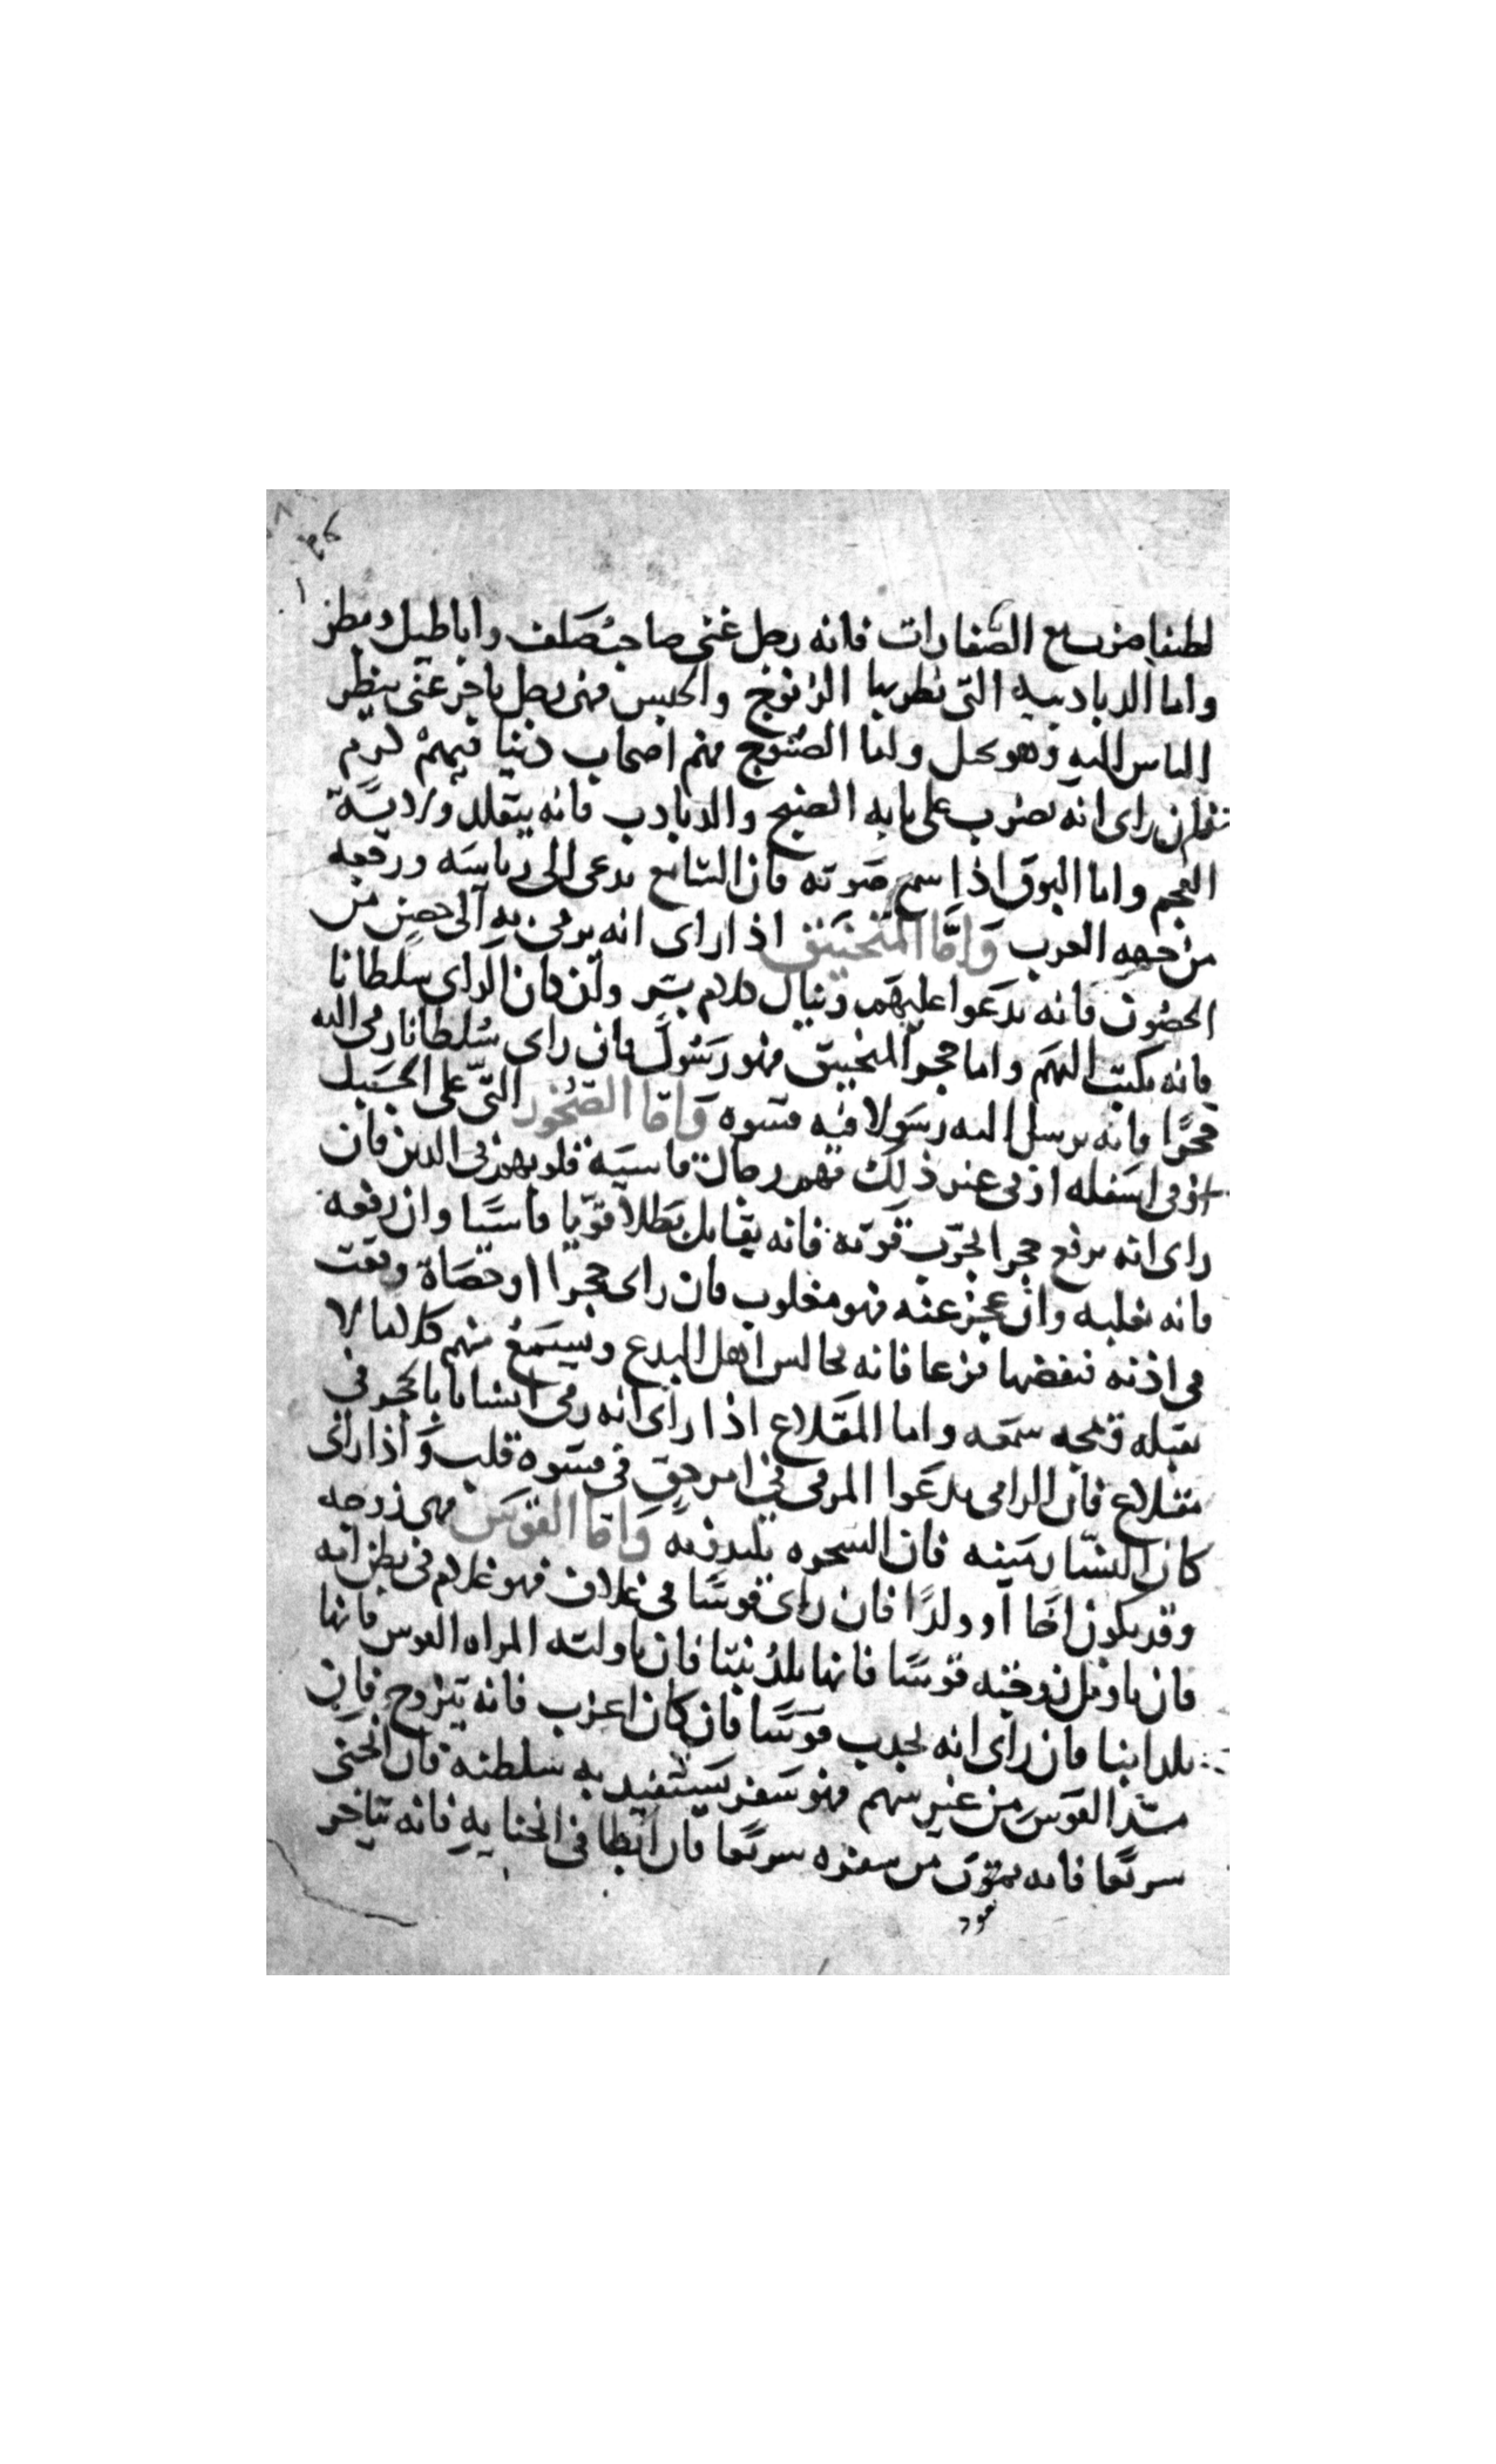 لطيفا ضرب مع الصفارات فانه رجل غني صاحب صلف واباطيل وبطر
واما الدبادبيه التي نظر بها الزنوج والحبس فهي رجل ياخر غني ينظر
الناس اليه وهو بخيل واما الصنوج فهم اصحاب دنيا فيهم كرم
فمن راى انه يضرب على بابه الصنج والدبادب فانه يتقلد ولاية
العجم واما البوق اذا سمع صوته فان السامع يدعى الى رياسه ورفعه
من جهه العرب واما المنجنيق اذا راى انه يرمي به الى حصن من
الحصون فانه يدعوا عليهم وينال كلام بشر ولئن كان الراي سلطانا
فانه يكتب اليهم واما حجر المنجنيق فهو رسول فان راى سلطانا رمى اليه
حجرا فانه يرسل اليه رسولا فيه قسوه واما الصخور التي على الجبل
او في اسفله او في غير ذلك فهم رجال قاسية قلوبهم في الدين فان
راى انه يرفع حجرا لتجرب قوته فانه يقابل بطلا قويا قاسيا وان رفعه
فانه يغلبه وان عجز عنه فهو مغلوب فان راى حجرا او حصاة وقعت
في اذنه فنفضها فزعا فانه يجالس اهل البدع ويسمع منهم كلاما لا
يقبله قمجه سمعه واما المقلاع اذا راى انه رمى انسانا بالحجر في
مقلاع فان الرامي يدعوا المرمي في امر حق في قسوة قلب واذا راى
كان السحره فان
وقد يكون اخا او ولدا فان راى قوسا في غلاف فهو غلام في بطن امه
فان ناول زوجته قوسا فانها تلد بنتا فان ناولته المراه القوس فانها
تلد ابنا فان راى انه يجذب قوسا فان كان اعزب فانه يتزوج فان
مد القوس من غير سهم فهو سفر يستفيد به سلطنه فان انحنى
سريعا فانه يعود من سفره سريعا فان ابطا في انحنايه فانه يتاخر
يعود